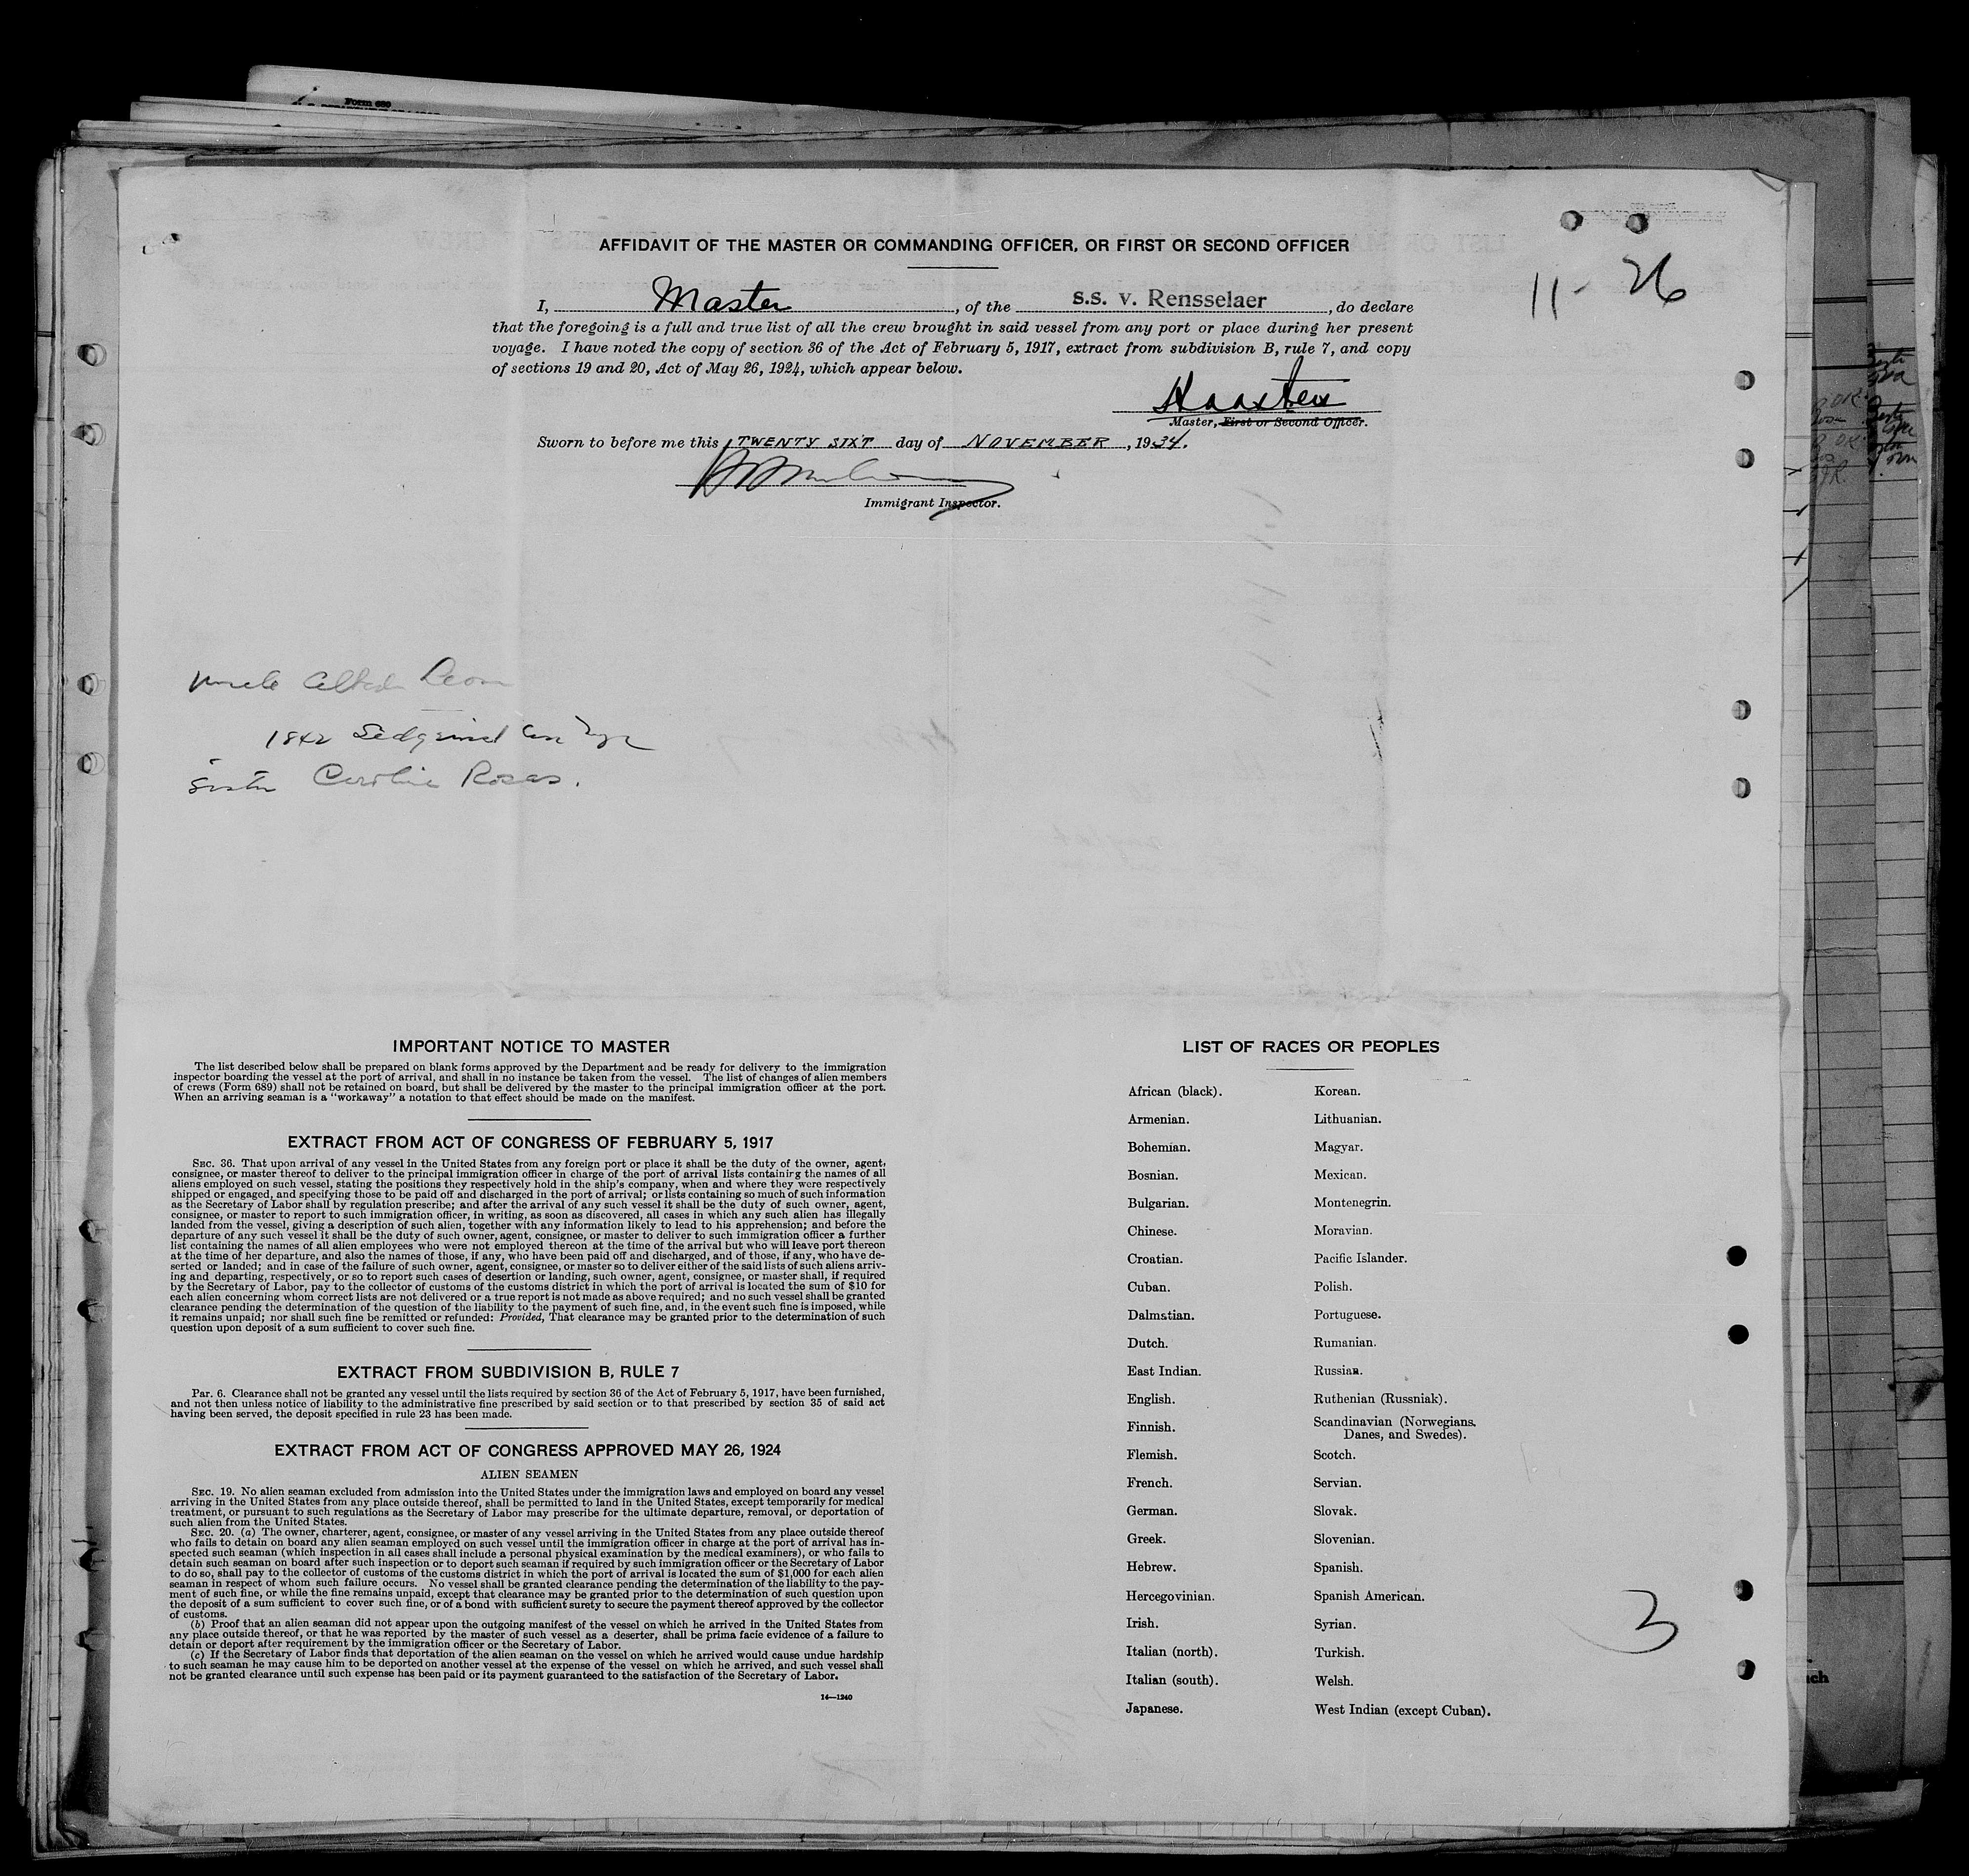 Form 680
AFFIDAVIT OF THE MASTER OR COMMANDING OFFICER, OR FIRST OR SECOND OFFICER
11- 26
I, Master, of the S.S. v. Rensselaer, do declare
that the foregoing is a full and true list of all the crew brought in said vessel from any port or place during her present
voyage. I have noted the copy of section 36 of the Act of February 5, 1917, extract from subdivision B, rule 7, and copy
of sections 19 and 20, Act of May 26, 1924, which appear below.
Master, First or Second Officer.
Sworn to before me this TWENTY SIXT day of NOVEMBER, 1934.
Immigrant Inspector.
Uncle
1842
Sister Rosas.
IMPORTANT NOTICE TO MASTER
The list described below shall be prepared on blank forms approved by the Department and be ready for delivery to the immigration
inspector boarding the vessel at the port of arrival, and shall in no instance be taken from the vessel. The list of changes of alien members
of crews (Form 689) shall not be retained on board, but shall be delivered by the master to the principal immigration officer at the port.
When an arriving seaman is a "workaway" a notation to that effect should be made on the manifest.
EXTRACT FROM ACT OF CONGRESS OF FEBRUARY 5, 1917
SEC. 36. That upon arrival of any vessel in the United States from any foreign port or place it shall be the duty of the owner, agent,
consignee, or master thereof to deliver to the principal immigration officer in charge of the port of arrival lists containing the names of all
aliens employed on such vessel, stating the positions they respectively hold in the ship's company, when and where they were respectively
shipped or engaged, and specifying those to be paid off and discharged in the port of arrival; or lists containing so much of such information
as the Secretary of Labor shall by regulation prescribe; and after the arrival of any such vessel it shall be the duty of such owner, agent,
consignee, or master to report to such immigration officer, in writing, as soon as discovered, all cases in which any such alien has illegally
landed from the vessel, giving a description of such alien, together with any information likely to lead to his apprehension; and before the
departure of any such vessel it shall be the duty of such owner, agent, consignee, or master to deliver to such immigration officer a further
list containing the names of all alien employees who were not employed thereon at the time of the arrival but who will leave port thereon
at the time of her departure, and also the names of those, if any, who have been paid off and discharged, and of those, if any, who have de-
serted or landed; and in case of the failure of such owner, agent, consignee, or master so to deliver either of the said lists of such aliens arriv-
ing and departing, respectively, or so to report such cases of desertion or landing, such owner, agent, consignee, or master shall, if required
by the Secretary of Labor, pay to the collector of customs of the customs district in which the port of arrival is located the sum of $10 for
each alien concerning whom correct lists are not delivered or a true report is not made as above required; and no such vessel shall be granted
clearance pending the determination of the question of the liability to the payment of such fine, and, in the event such fine is imposed, while
it remains unpaid; nor shall such fine be remitted or refunded: Provided, That clearance may be granted prior to the determination of such
question upon deposit of a sum sufficient to cover such fine.
EXTRACT FROM SUBDIVISION B, RULE 7
Par. 6. Clearance shall not be granted any vessel until the lists required by section 36 of the Act of February 5, 1917, have been furnished,
and not then unless notice of liability to the administrative fine prescribed by said section or to that prescribed by section 35 of said act
having been served, the deposit specified in rule 23 has been made.
EXTRACT FROM ACT OF CONGRESS APPROVED MAY 26, 1924
ALIEN SEAMEN
SEC. 19. No alien seaman excluded from admission into the United States under the immigration laws and employed on board any vessel
arriving in the United States from any place outside thereof, shall be permitted to land in the United States, except temporarily for medical
treatment, or pursuant to such regulations as the Secretary of Labor may prescribe for the ultimate departure, removal, or deportation of
such alien from the United States.
SEC. 20. (a) The owner, charterer, agent, consignee, or master of any vessel arriving in the United States from any place outside thereof
who fails to detain on board any alien seaman employed on such vessel until the immigration officer in charge at the port of arrival has in-
spected such seaman (which inspection in all cases shall include a personal physical examination by the medical examiners), or who fails to
detain such seaman on board after such inspection or to deport such seaman if required by such immigration officer or the Secretary of Labor
to do so, shall pay to the collector of customs of the customs district in which the port of arrival is located the sum of $1,000 for each alien
seaman in respect of whom such failure occurs. No vessel shall be granted clearance pending the determination of the liability to the pay-
ment of such fine, or while the fine remains unpaid, except that clearance may be granted prior to the determination of such question upon
the deposit of a sum sufficient to cover such fine, or of a bond with sufficient surety to secure the payment thereof approved by the collector
of customs.
(b) Proof that an alien seaman did not appear upon the outgoing manifest of the vessel on which he arrived in the United States from
any place outside thereof, or that he was reported by the master of such vessel as a deserter, shall be prima facie evidence of a failure to
detain or deport after requirement by the immigration officer or the Secretary of Labor.
(c) If the Secretary of Labor finds that deportation of the alien seaman on the vessel on which he arrived would cause undue hardship
to such seaman he may cause him to be deported on another vessel at the expense of the vessel on which he arrived, and such vessel shall
not be granted clearance until such expense has been paid or its payment guaranteed to the satisfaction of the Secretary of Labor.
14—1240
LIST OF RACES OR PEOPLES
African (black).
Armenian.
Bohemian.
Bosnian.
Bulgarian.
Chinese.
Croatian.
Cuban.
Dalmatian.
Dutch.
East Indian.
English.
Finnish.
Flemish.
French.
German.
Greek.
Hebrew.
Hercegovinian.
Irish.
Italian (north).
Italian (south).
Japanese.
Korean.
Lithuanian.
Magyar.
Mexican.
Montenegrin.
Moravian.
Pacific Islander.
Polish.
Portuguese.
Rumanian.
Russian.
Ruthenian (Russniak).
Scandinavian (Norwegians,
Danes, and Swedes).
Scotch.
Servian.
Slovak.
Slovenian.
Spanish.
Spanish American.
Syrian.
Turkish.
Welsh.
West Indian (except Cuban).
3